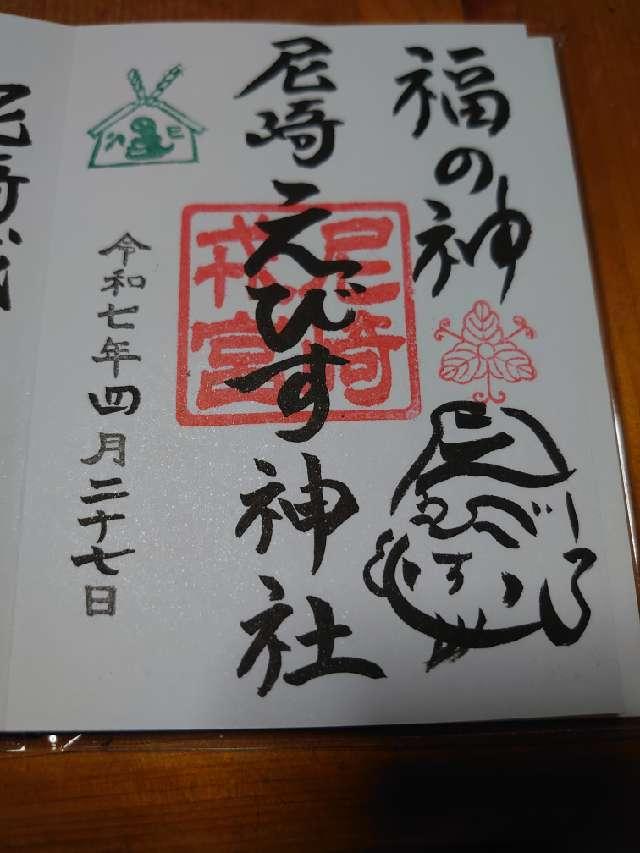 福の神
えびす
尼崎えびす神社
尼崎
戎宮
巳
令和七年四月二十七日
尼崎戎